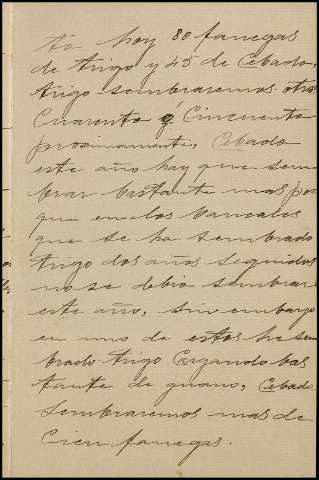 ta hoy 80 fanegas
de trigo y 45 de Cebada,
trigo sembraremos otras
Cuarenta ó Cincuenta
proximamente, Cebada
este año hay que sem
brar bastante mas por
que en los bancales
que se ha sembrado
trigo dos años seguidos
no se debio sembrar
este año, sin embargo
en uno de estos he sem
brado trigo Cargando bas
tante de guano, Cebada
sembraremos mas de
Cien fanegas.